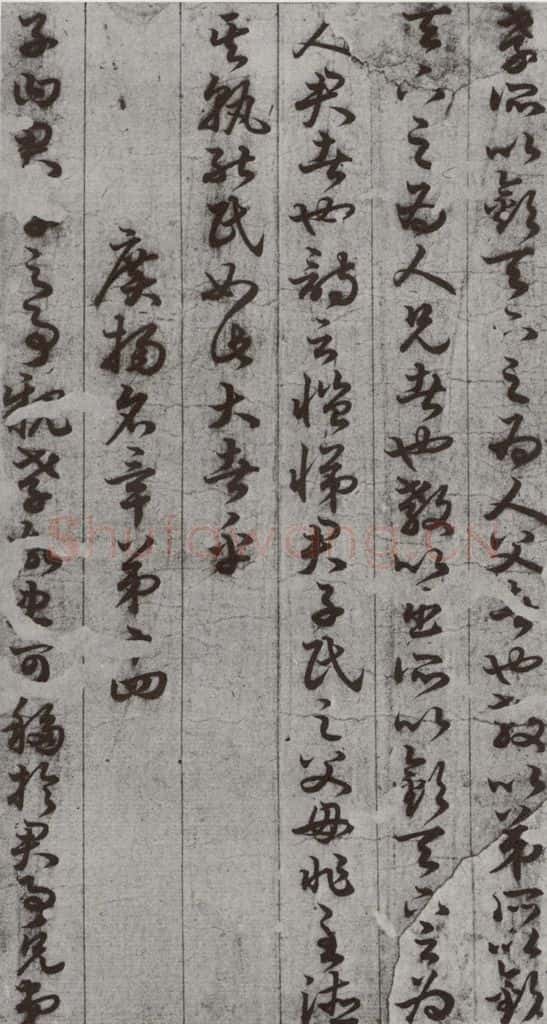 孝所以敬天下之為人父者也教以弟所以敬
天下之為人兄者也教以臣所以敬天下之為
人君者也詩云愷悌君子民之父母非至德
其孰能民如此大者乎
廣揚名章第十四
子曰君子之事親孝故忠可移於君事兄弟
Shufawang.CN